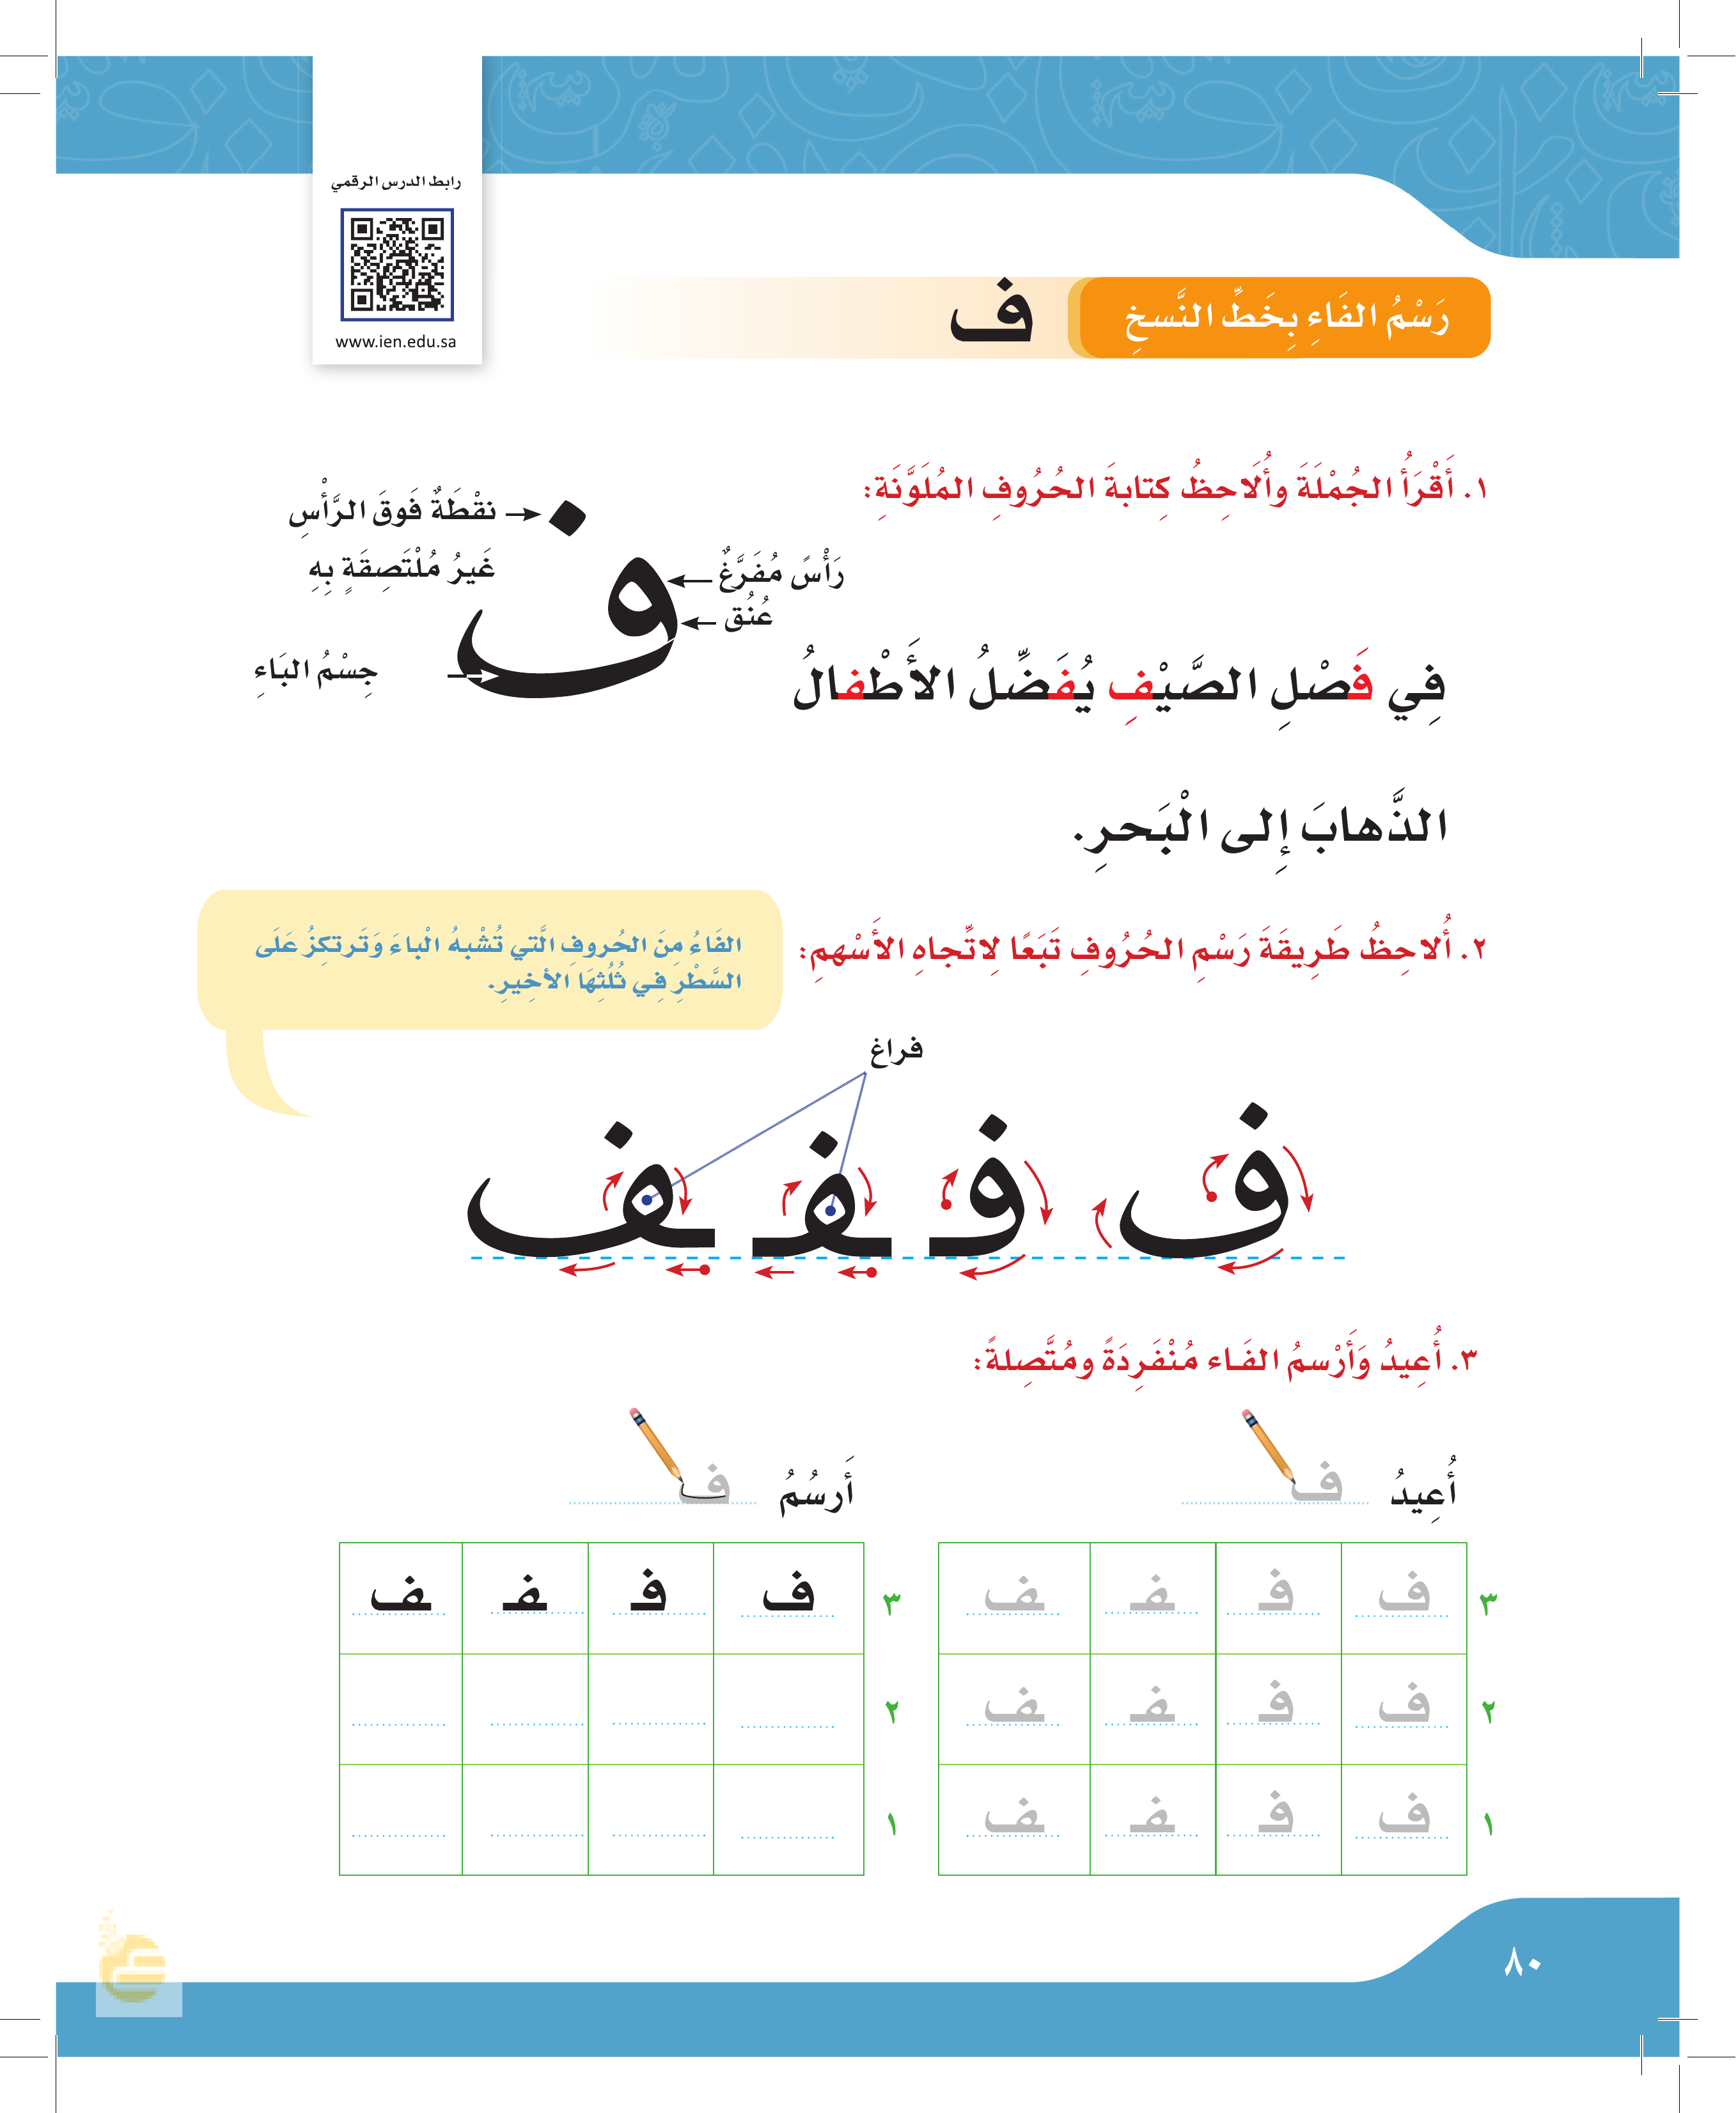 رابط الدرس الرقمي
www.ien.edu.sa
رَسْمُ الفَاءِ بِخَطِّ النَّسخِ ف
١. أَقْرَأُ الجُمْلَةَ وأُلَاحِظُ كِتابةَ الحُرُوفِ المُلَوَّنَةِ:
نقْطَةٌ فَوقَ الرَّأْسِ
غَيرُ مُلْتَصِقَةٍ بِهِ
رَأْسٌ مُفَرَّغٌ
عُنُق
جِسْمُ البَاءِ
ف
فِي فَصْلِ الصَّيْفِ يُفَضِّلُ الأَطْفالُ
الذَّهابَ إِلى الْبَحرِ.
٢. أُلاحِظُ طَرِيقَةَ رَسْمِ الحُرُوفِ تَبَعًا لِاتِّجاهِ الأَسْهمِ:
الفَاءُ مِنَ الحُروفِ الَّتي تُشْبهُ الْباءَ وَتَرتكِزُ عَلَى
السَّطْرِ فِي ثُلُثِهَا الأخِيرِ.
فراغ
ف فـ ـفـ ـف
٣. أُعِيدُ وَأَرْسمُ الفَـاء مُنْفَرِدَةً ومُتَّصِلةً:
أُعِيدُ ف
أَرسُمُ ف
٣ ف فـ ـفـ ـف
٢ ف فـ ـفـ ـف
١ ف فـ ـفـ ـف
٣ ف فـ ـفـ ـف
٢
١
٨٠